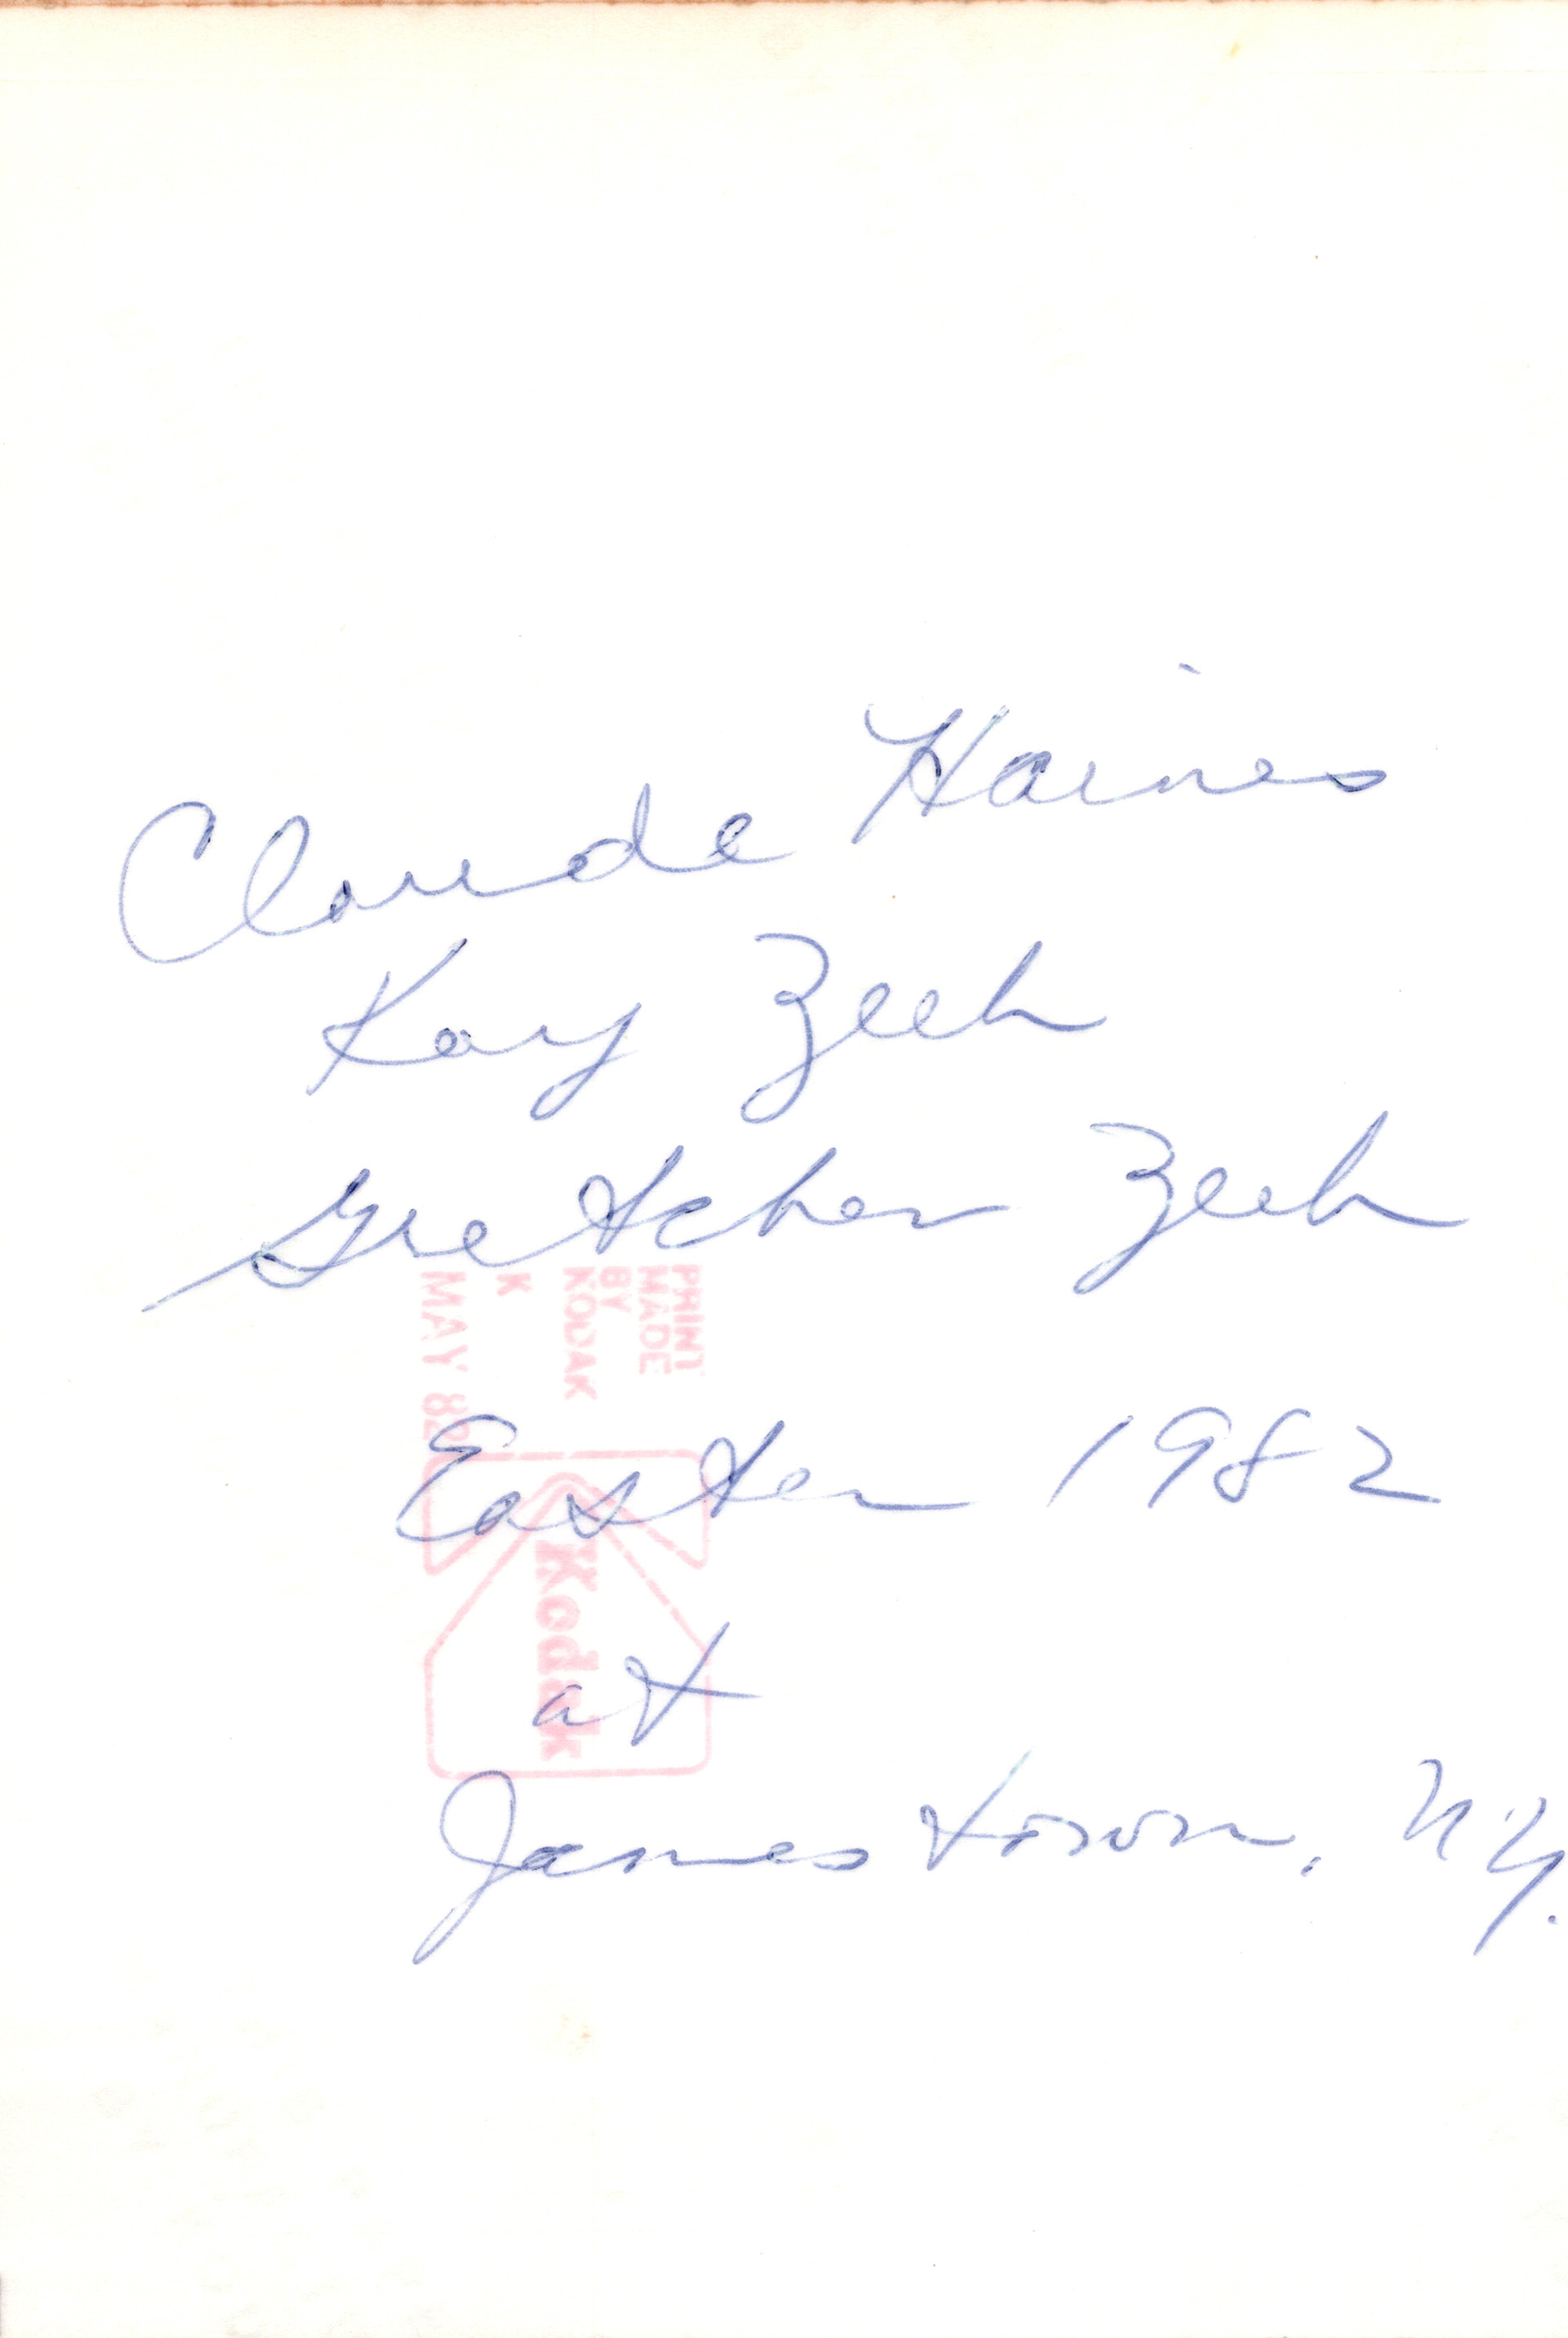 Claude Haines
Kay Zeeh
Gretchen Zeeh
Easter 1982
at
Jamestown, N.Y.
PRINT
MADE
BY
KODAK
K
MAY 82
Kodak